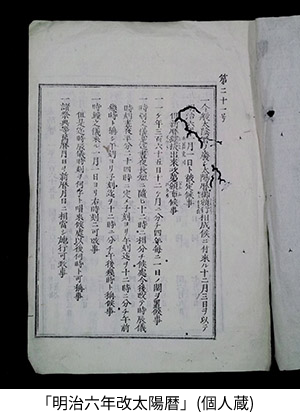 第二十一号
一今般太陰暦ヲ廃シ太陽暦御頒行相成候ニ付来ル十二月三日ヲ以テ
六年一月一日ト被定候事
新暦鏤板出来次第頒布候事
一一ケ年三百六十五日十二ケ月ニ分チ四年毎ニ一日ノ閏ヲ置候事
一時刻ノ儀是迄昼夜長短ニ随ヒ十二時ニ相分チ候處今後改テ時辰儀
時刻昼夜平分二十四時ニ定メ子刻ヨリ午刻迄ヲ十二時ニ分チ午前
幾時ト称シ午刻ヨリ子刻迄ヲ十二時ニ分チ午後幾時ト称候事
一時鐘ノ儀来ル一月一日ヨリ右時刻ニ可改事
但是迄時辰儀時刻ヲ何字ト唱来候處以後何時ト可称事
一諸祭典等旧暦月日ヲ新暦月日ニ相當シ施行可致事
「明治六年改太陽暦」(個人蔵)